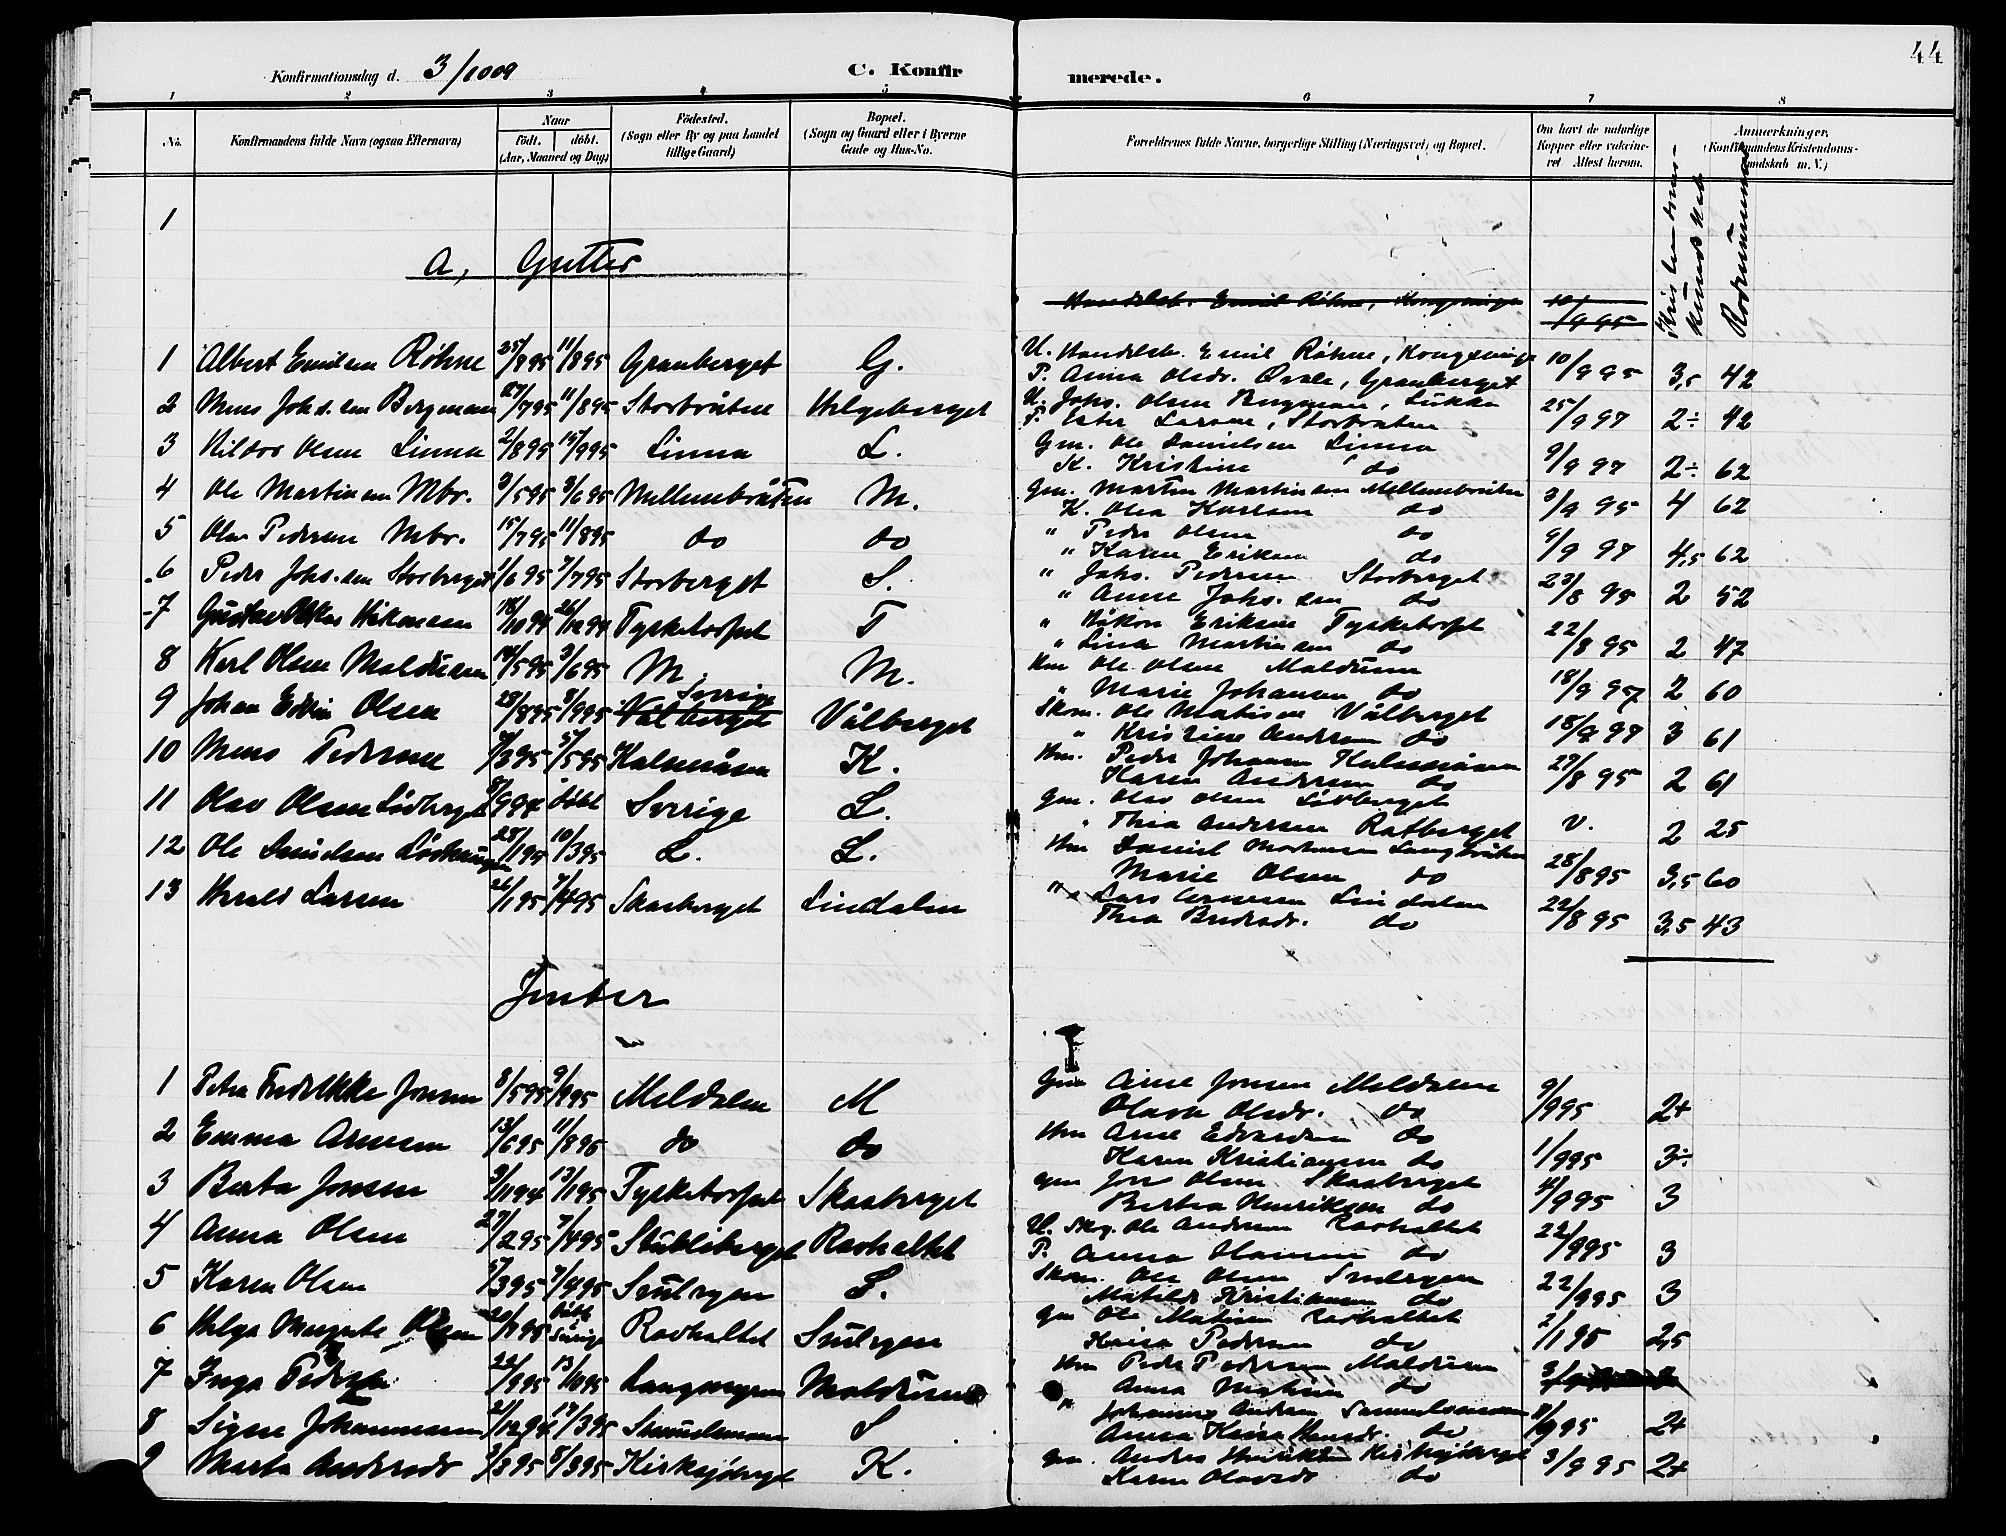 44
Konfirmationsdag d. 3/10 09 C. Konfirmerede.
1 2 3 4 5 6 7 8
No. Konfirmandens fulde Navn (ogsaa Efternavn) Naar født. døbt. (Aar, Maaned og Dag) Fødested. (Sogn eller By og paa Landet tillige Gaard) Bopæl. (Sogn og Gaard eller i Byerne Gade og Hus-No. Forældrenes fulde Navne, borgerlige Stilling (Næringsvei) og Bopæl. Om havt de naturlige Kopper eller vaccineret Attest herom. Anmærkninger. (Konfirmandens Kristendomskundskab m. V.)
Kristendomskundskab
1
a, Gutter
Handelsb. Emil Røhne, Kongsvinger 10/9 95
1 Albert Emilsen Røhne 25/8 95 11/8 95 Granberget G. U. Handelsb. Emil Røhne, Kongsvinger 10/9 95 3,5 42
P. Anna Olsdr. Granberget
2 Mens Johs.sen Bergmann 27/7 95 11/8 95 Storbråten Helgeberget U. Johs. Olsen Bergmann, 25/9 97 2÷ 42
Ester Larsen, Storbråten
3 Olsen Linna 2/8 95 15/9 95 Linna L. Gm. Ole Danielsen Linna 9/9 97 2÷ 62
K. Kristine do
4 Ole Martinsen Mbr. 3/5 95 3/6 95 Mellembråten M. Gm. Martin Martinsen Mellembråten 3/9 95 4 62
K. Olea Karlsen do
5 Olav Pedersen Mbr. 15/7 95 11/8 95 do do " Peder Olsen do 9/9 97 4,5 62
" Karen Eriksen do
6 Peder Johs.sen Storberget 1/6 95 7/7 95 Storberget S. " Johs. Pedersen Storberget 23/8 95 2 52
" Anne Johs.sen do
7 Gustav Oskar Håkonsen 18/10 94 26/12 94 Tysketorpet T " Håkon Eriksen Tysketorpet 22/8 95 2 47
" Lina Martinsen do
8 Karl Olsen Maldusen 14/5 95 3/6 95 M. M. Hm Ole Olsen Maldusen 18/9 957 2 60
" Marie Johansen do
9 Johan Edvin Olsen 28/8 95 8/9 95 Sverige Valberget Vålberget Skom. Ole Matisen Vålberget 18/9 97 3 61
" Kristine Andersen do
10 Mens Pedersen 5/5 95 Kalnesåsen K. Hm. Peder Johansen 27/8 95 2 61
Karen Andersen do
11 Olav Olsen Løvberget 94 døbt Sverige L. Gm. Olav Olsen Løvberget v. 2 25
" Thea Andersen Rotberget
12 Ole 28/1 95 10/3 95 L. L. Hm Daniel Langbråten 28/8 95 3,5 60
Marie Olsen do
13 Harald Larsen 26/1 95 7/4 95 Skasberget Lindalen " Lars Arnesen Lindalen 22/8 95 3,5 43
Thea do
Jenter
1 Petra Fredrikke Jonsen 8/5 95 9/9 95 Meldalen M Gm Arne Jonsen Meldalen 9/9 95 2+
Olava Olsdr. do
2 Emma Arnesen 13/6 95 11/8 95 do do Hm Arne Edvardsen do 1/9 95 3÷
Karen Kristiansen do
3 Berta Jonsen 9/11 94 13/1 95 Tysketorpet Skasberget Gm Jon Olsen Skasberget 4/9 95 3
Bertea Henriksen do
4 Anna Olsen 27/2 95 7/4 95 Stubliberget Ravholtet U. Skg. Ole Andersen Ravholtet 22/9 95 3
P. Anna Hansen do
5 Karen Olsen 5/3 95 7/4 95 S. Skom. Ole Olsen 22/9 95 3
Matilde Kristiansen do
6 Helga Margrete Olsen døbt Ravholtet Gm Ole Matisen Ravholtet 2/11 95 2,5
Pedersen do
7 Inga Pedersen 22/9 95 13/10 95 Langmyren Maldusen Hm Peder Pedersen Maldusen 3/9
Anna Matisen do
8 Signe Johannessen 21/12 94 17/3 95 S " Johannes Andersen 95 2+
Anna do
9 Marta Andersdr 3/3 95 8/3 95 Kirksjøberget K. Gm. Anders Henriksen Kirksjøberget 3/9 95 2+
Karen Olavsdr do